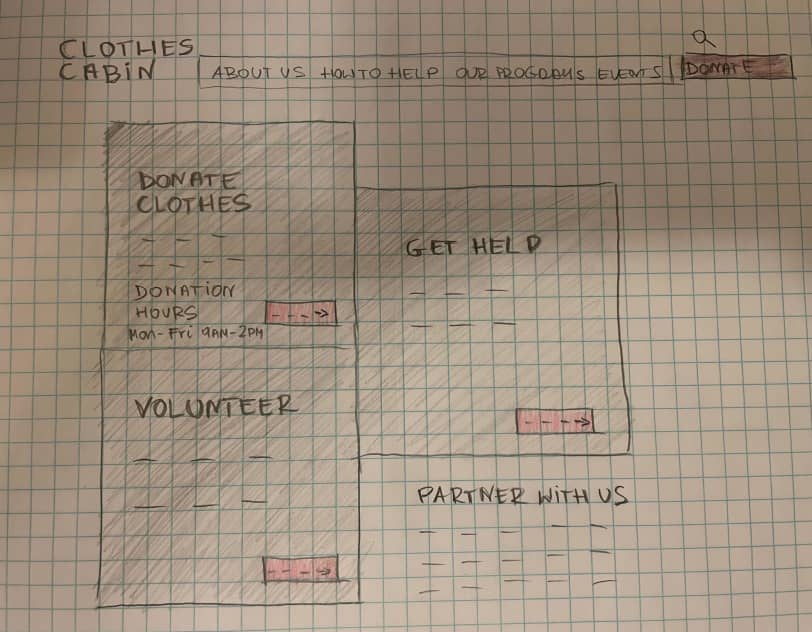 CLOTHES
CABIN
ABOUT US HOW TO HELP OUR PROGRAMS EVENTS DONATE
DONATE
CLOTHES
DONATION
HOURS
Mon-Fri 9AM-2PM
GET HELP
VOLUNTEER
PARTNER WITH US